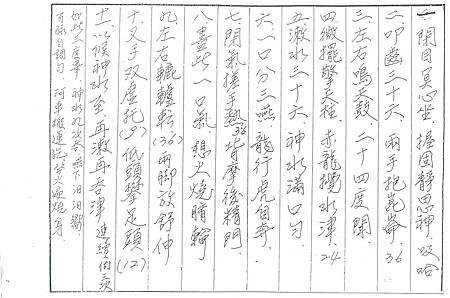 一.閉目冥心坐.握固靜思神.咬哈
二.叩齒三十六 兩手抱崑崙.36
三.左右鳴天鼓 二十四度聞.
四.微擺撼天柱.赤龍攪水津.24
五.漱水三十六 神水滿口勻
六.一口分三嚥.龍行虎自奔.
七.閉氣搓手熱36 背摩後精門.
八.盡此一口氣 想火燒臍輪
九.左右轆轤轉(36)兩腳放舒伸
十.叉手双虛托(9)低頭攀足頭(12)
十一.以候神水至.再漱再吞津 連續 三次
如此三度畢.神水九次吞.嚥下汩汩響
百脈自調勻.河車搬運訖.發火遍燒身.